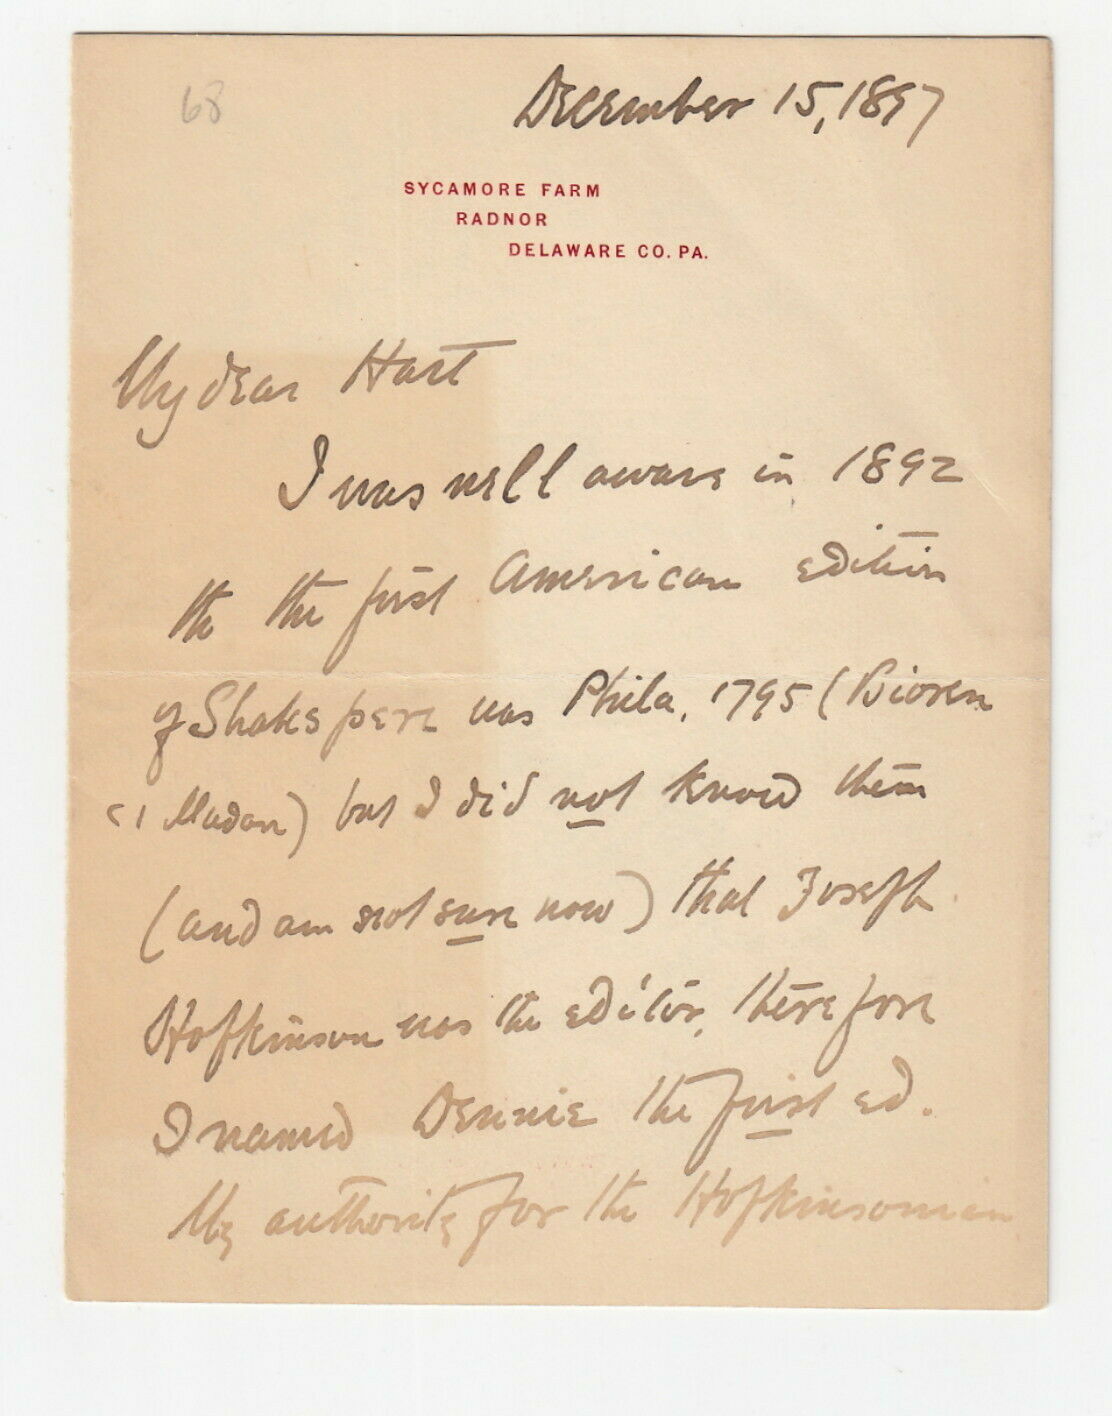 68
December 15, 1897
SYCAMORE FARM
RADNOR
DELAWARE CO. PA.
My dear Hart
I was well aware in 1892
tht the first American edition
of Shakspere was Phila. 1795 (Bioren
& Madan) but I did not know then
(and am not sure now) that Joseph
Hopkinson was the editor, therefore
I named Dennie the first ed.
My authority for the Hopkinsonian